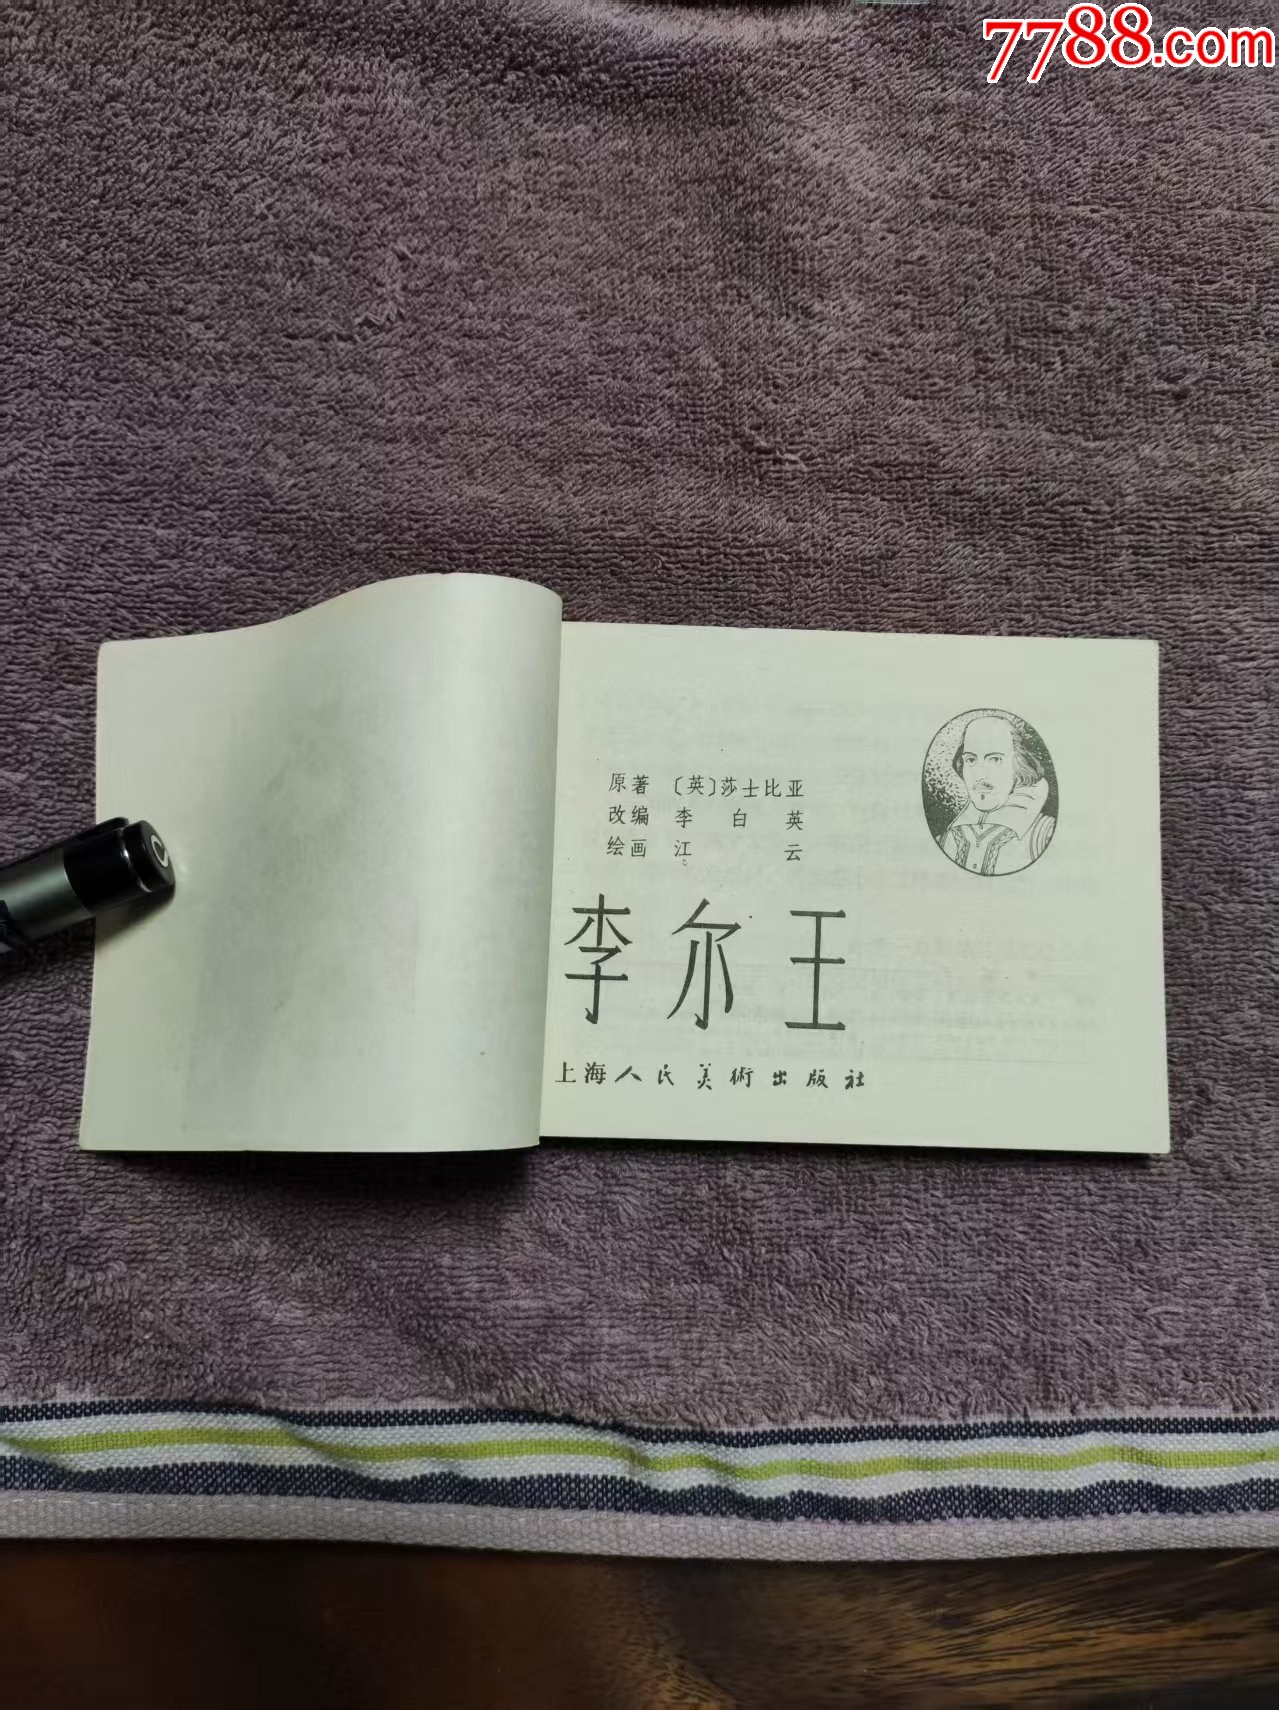 7788.com
原著 〔英〕莎士比亚
改编 李白英
绘画 江云
李尔王
上海人民美術出版社